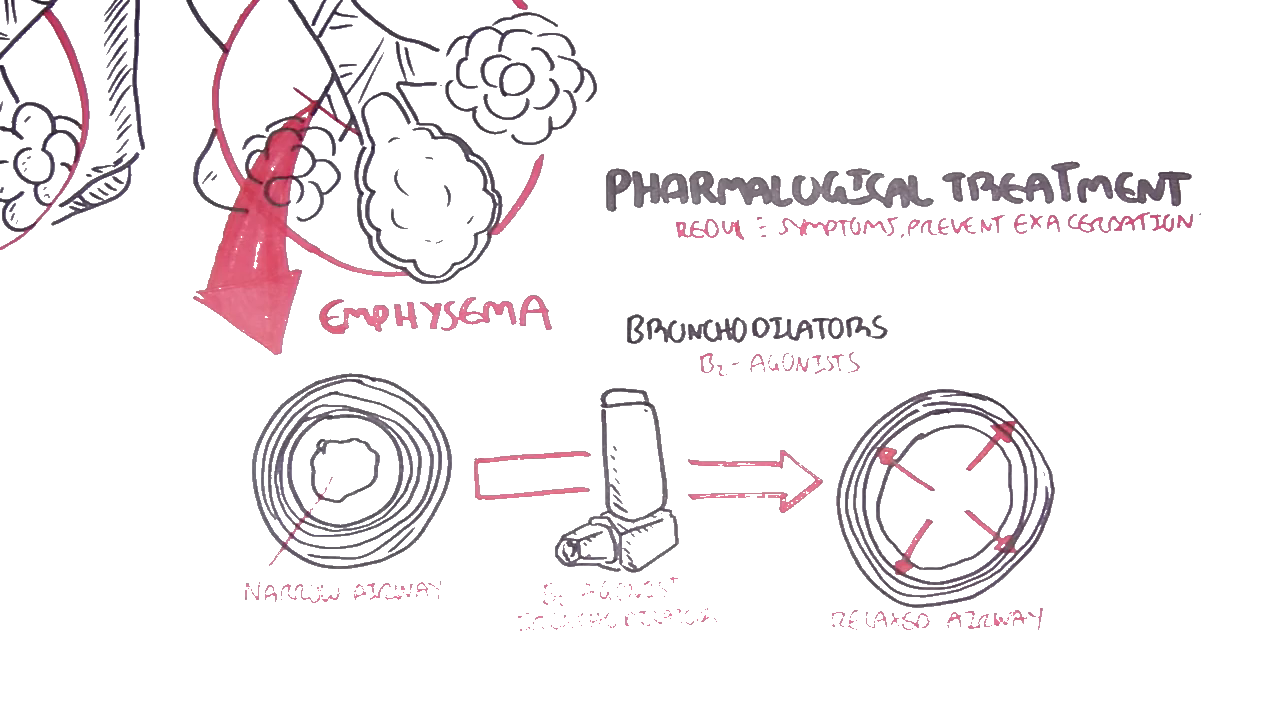 PHARMALOGICAL TREATMENT
REDUCE SYMPTOMS, PREVENT EXACERBATION
EMPHYSEMA
BRONCHODILATORS
B2-AGONISTS
NARROW AIRWAY
B2-AGONIST
BRONCHODILATOR
RELAXED AIRWAY